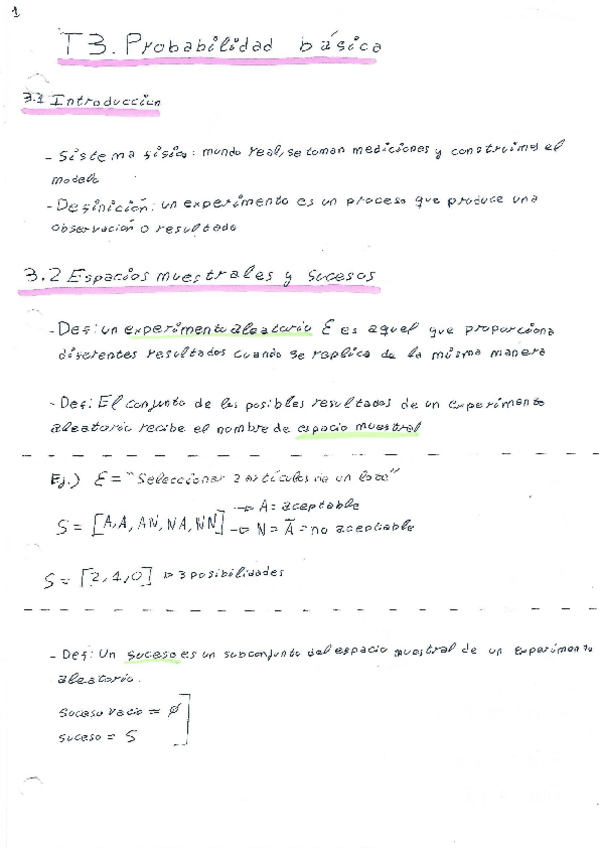 1
T3. Probabilidad básica
3.1 Introduccion
- Sistema físico: mundo real, se toman mediciones y construimos el
modelo
- Definición: un experimento es un proceso que produce una
observación o resultado
3.2 Espacios muestrales y sucesos
- Def: un experimento aleatorio E es aquel que proporciona
diferentes resultados cuando se replica de la misma manera
- Def: El conjunto de los posibles resultados de un experimento
aleatorio recibe el nombre de espacio muestral
Ej.) E = "Seleccionar 2 artículos de un lote"
→ A = aceptable
S = [A,A, AN, NA, NN] → N = Ā = no aceptable
S = [2,1,0] → 3 posibilidades
- Def: Un suceso es un subconjunto del espacio muestral de un experimento
aleatorio.
Suceso vacio = ∅
suceso = S